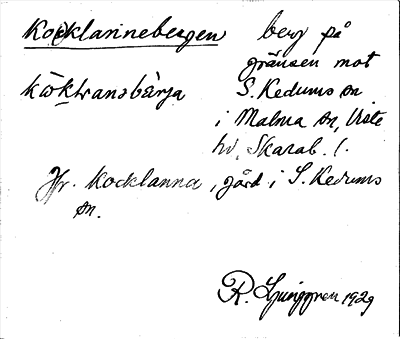 Kocklannebergen berg på
gränsen mot
S. Kedums sn
i Malma sn, Viste
hd, Skarab. l.
Jfr. Kocklanna, gård i S. Kedums
sn.
R. Ljunggren 1929